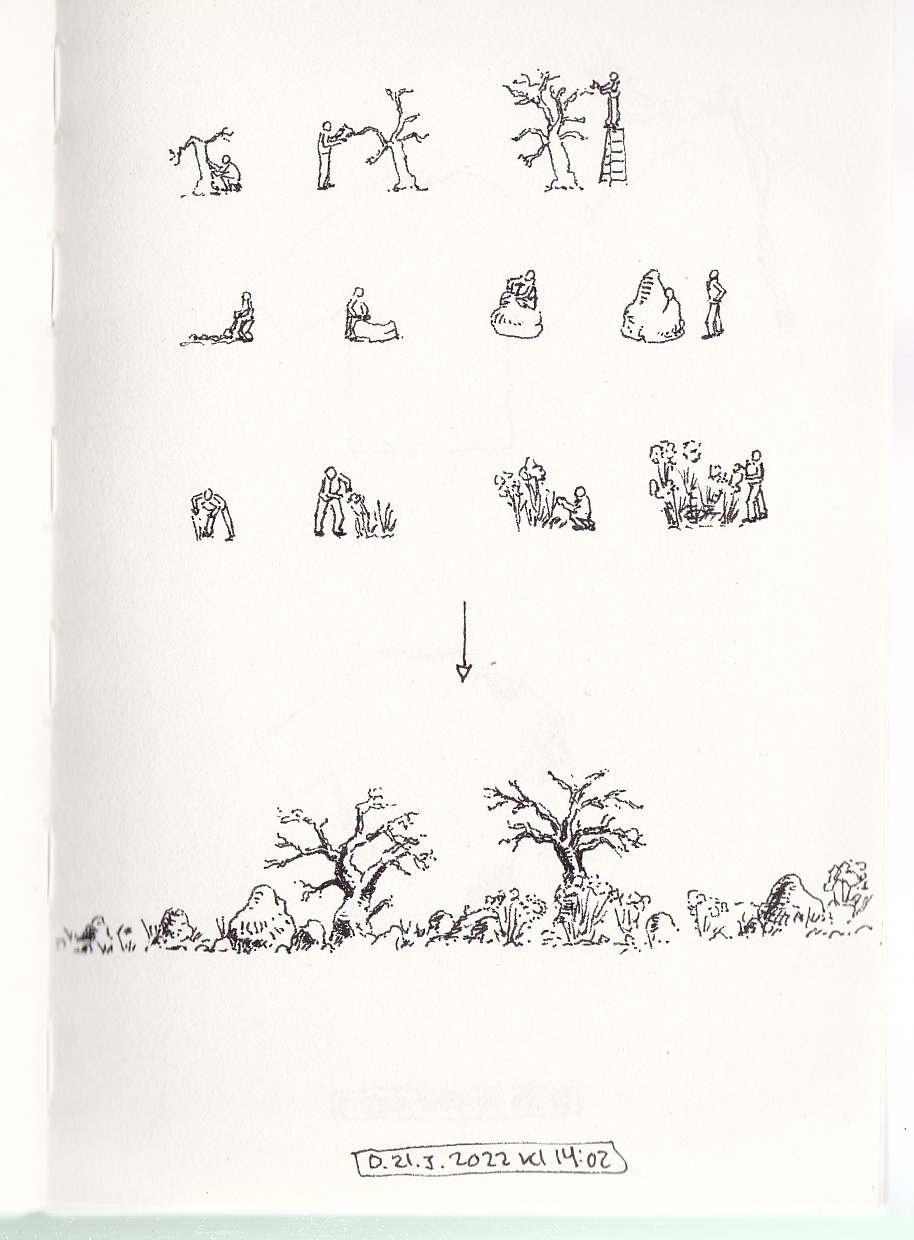 D. 21.3. 2022 kl 14:02